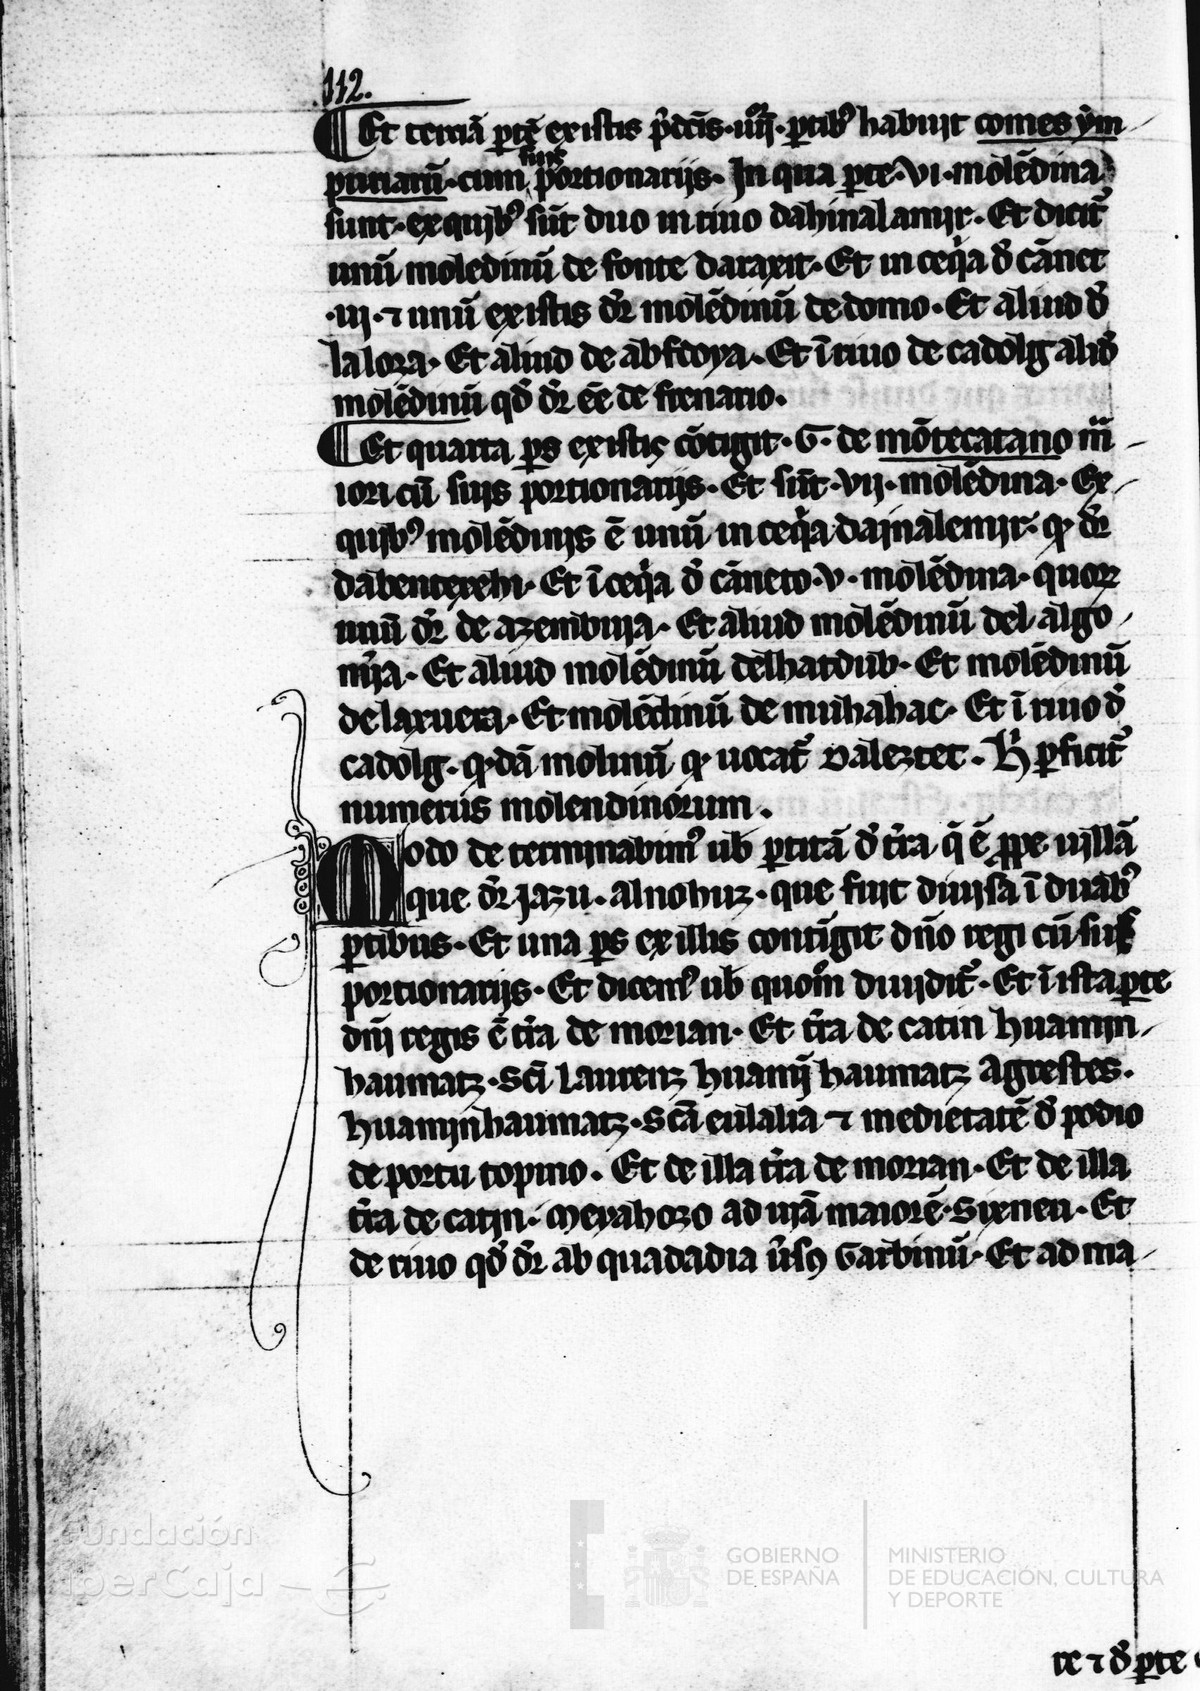 112.
Et terciā ꝑtē existis p̄dc̄is · iiijor · ꝑtibꝰ habuit comes ym
puriarū · cum suis portionarijs · In qua ꝑte · vi · molēdina
sunt · ex quibꝰ sūt duo in riuo dahinalamir · Et dicit᷑
unū moledinū de fonte daraxit · Et in ceq̄a đ cānet
· iij · ⁊ unū existis dr̄ molēdinū de domo · Et aliud đ
lalora · Et aliud de abfdoya · Et ī riuo de cadolg aliđ
molēdinū qđ dr̄ eē de frenario ·
Et quarta ꝑs existis cōtigit · G · de mōtecatano m̄
iori cū suis portionarijs · Et sūt · vij · molēdina · Ex
quibꝰ molēdinis ē unū in ceq̄a dainalemir · qͩ dr̄
dabenxexehi · Et ī ceq̄a đ cāneto · v · molēdina · quoꝝ
unū dr̄ de azembuia · Et aliud molēdinū del algo
m̄ia · Et aliud molēdinū delhardub · Et molēdinū
de laxuera · Et molēdinū de muhahac · Et ī riuo đ
cadolg · qͩdā molinū qͩ uocat᷑ dalezter · h̄ ꝑficit᷑
numerus molendinorum ·
Modo de terminabimꝰ uƀ ꝑtitā đ t̄ra q̄ ē ꝓpe uillā
que dr̄ Jazu · alnohuz · que fuit diuisa ī duabꝰ
ꝑtibus · Et una ꝑs ex illis contīgit dn̄o regi cū suis
portionarijs · Et dicemꝰ uƀ quom̄ diuidit᷑ · Et ī ista ꝑte
dn̄i regis ē t̄ra de morian · Et t̄ra de catin huamin
haumatz · Sc̄i laurenz huamī haumatz Agrestes ·
huamin haumatz · Sc̄a eulalia ⁊ medietatē đ podio
de portu topino · Et de illa t̄ra de morian · Et de illa
t̄ra de catin · Meyahozo ad uiā maiorē · Sixneu · Et
de riuo qđ dr̄ ab quadadia ūsꝰ Garbinū · Et ad ma
re ⁊ đ ꝑte
Fundación
iberCaja
GOBIERNO
DE ESPAÑA
MINISTERIO
DE EDUCACIÓN, CULTURA
Y DEPORTE